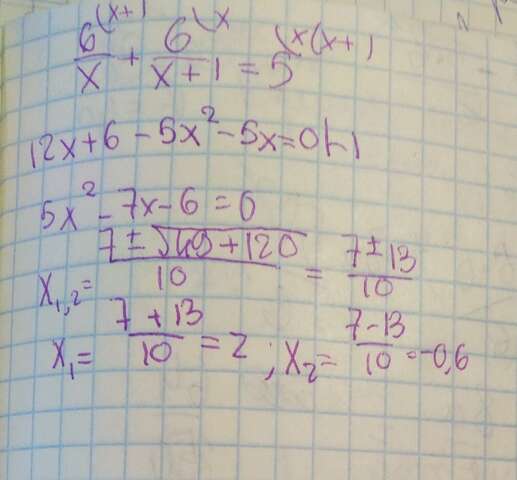 6^(x+1)/x + 6^(x)/(x+1) = 5^(x(x+1)
12x+6-5x²-5x=0|·(-1)
5x²-7x-6=0
x₁,₂=(7±√(49+120))/10 = (7±13)/10
x₁=(7+13)/10=2; x₂=(7-13)/10=-0,6